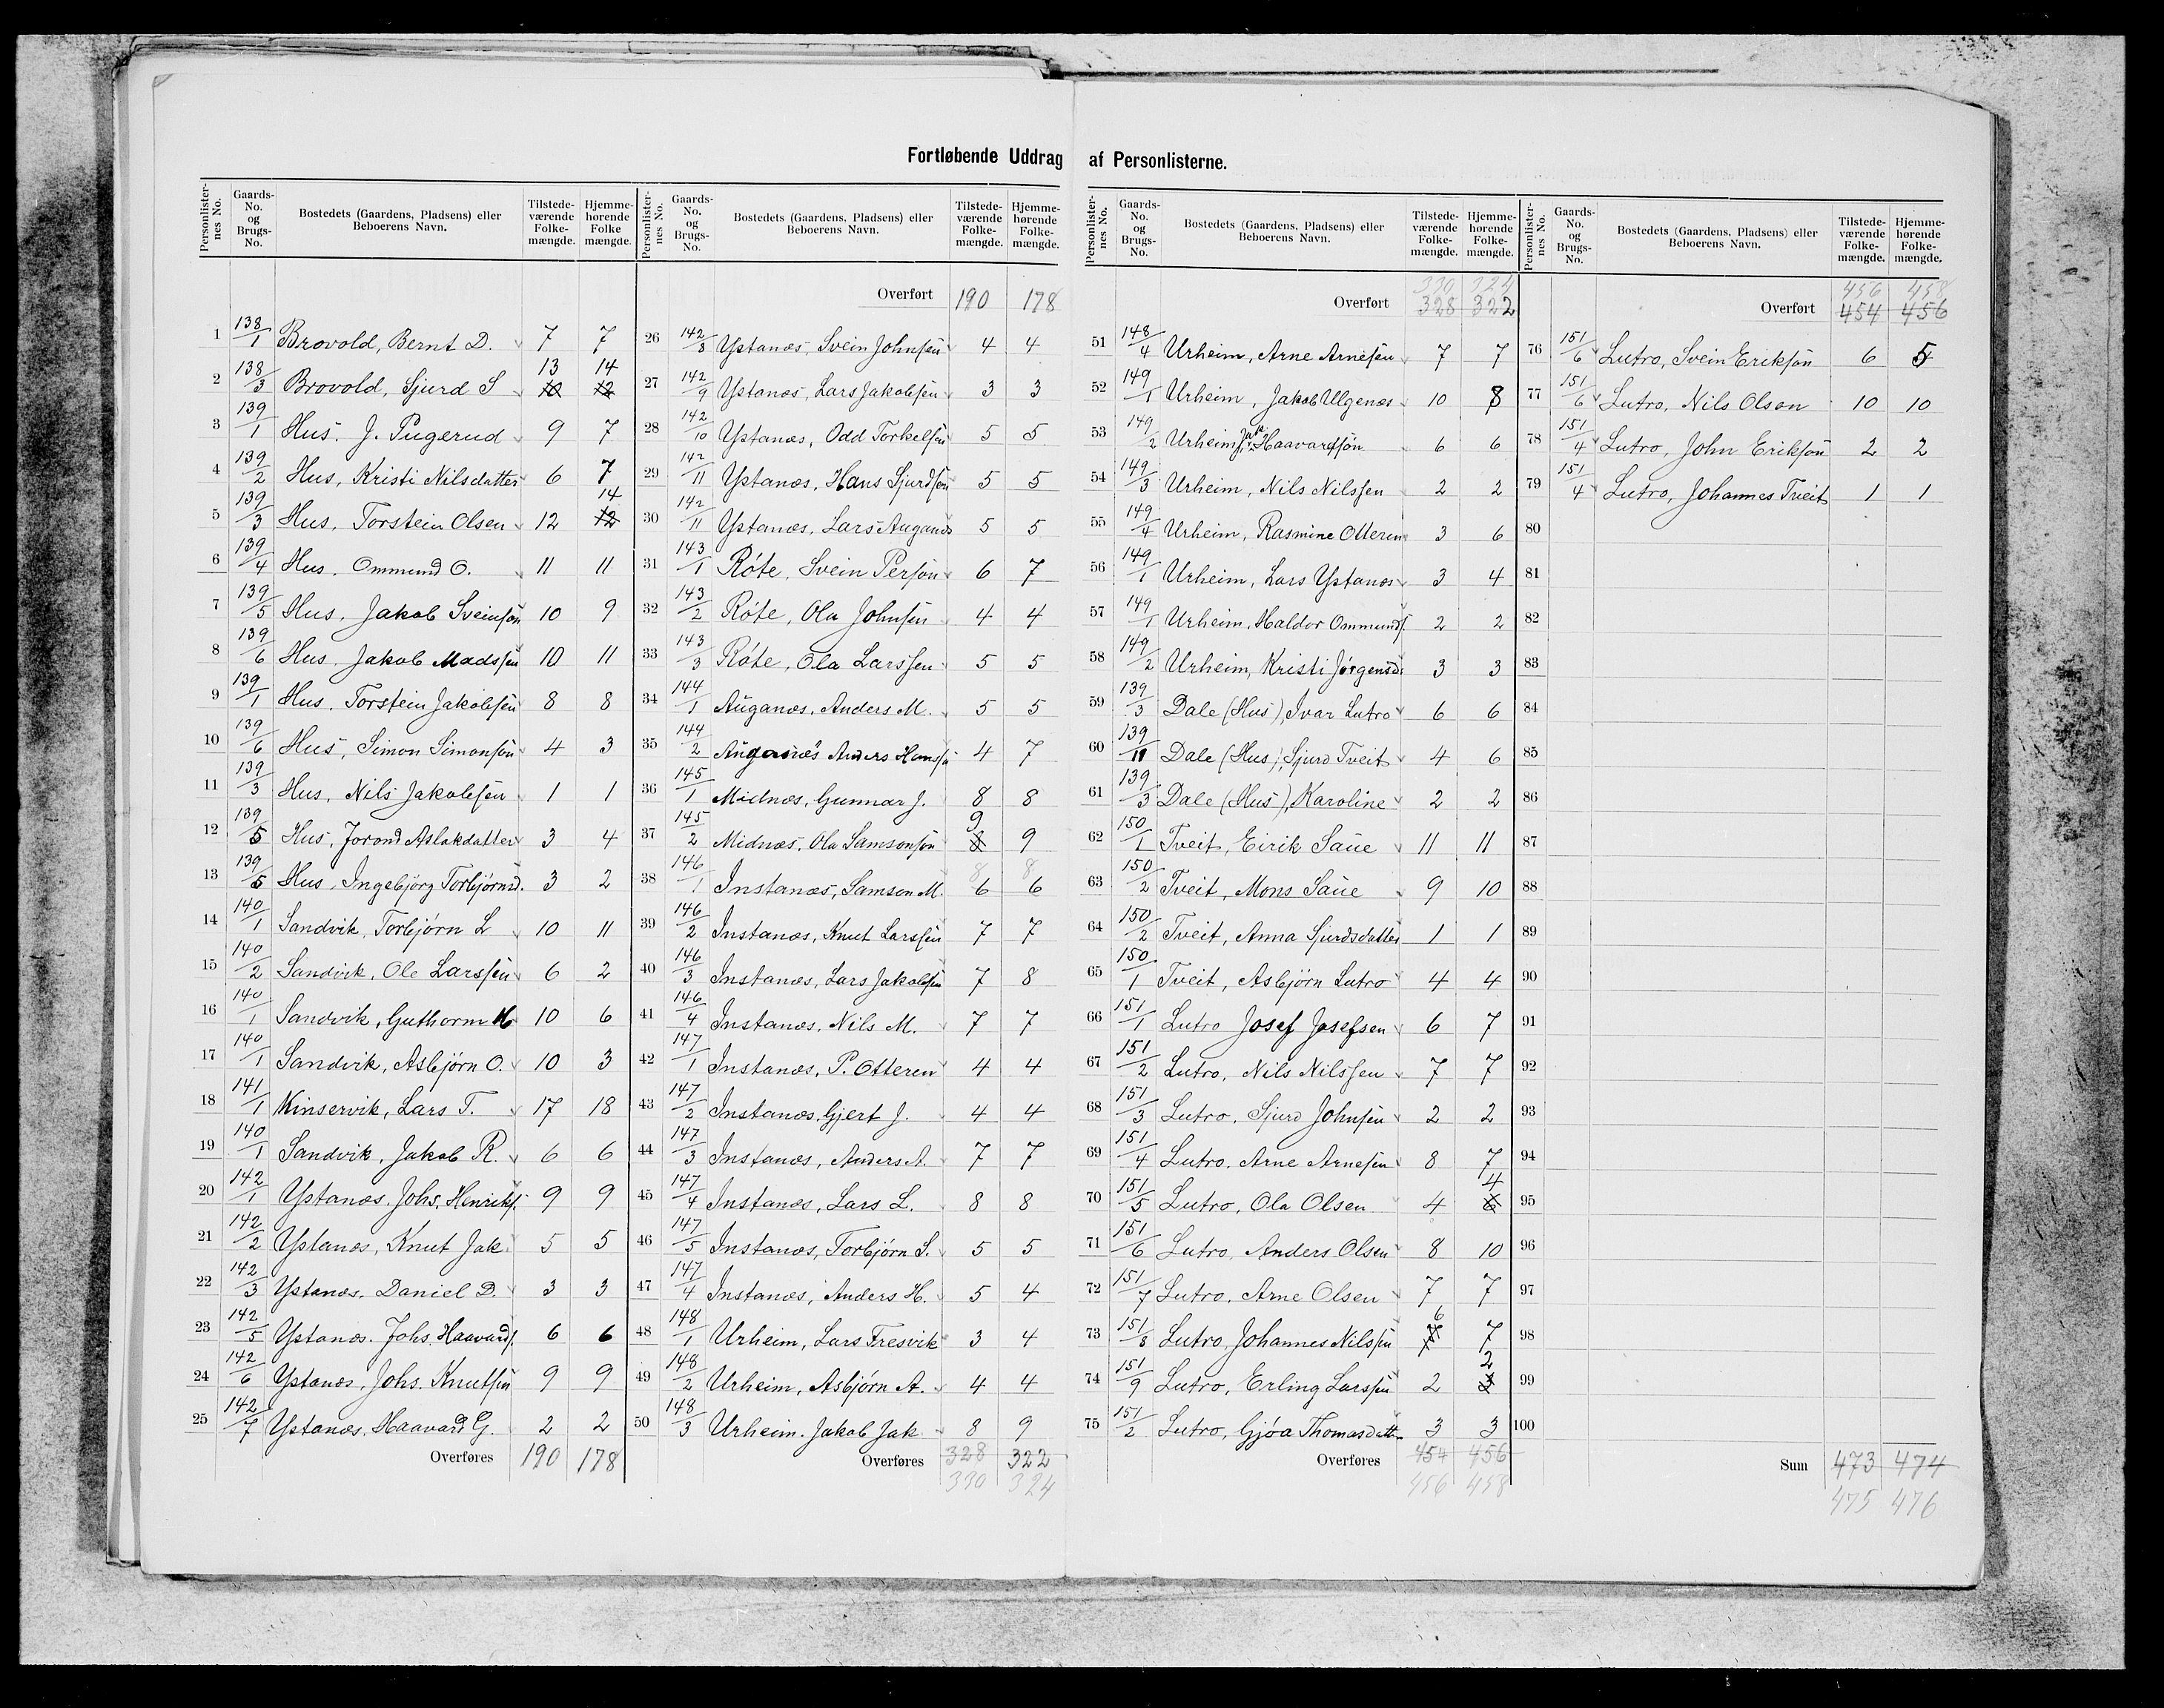 Fortløbende Uddrag af Personlisterne.
Personlisternes No. | Gaards-No. og Brugs-No. | Bostedets (Gaardens, Pladsens) eller Beboerens Navn. | Tilstedeværende Folkemængde. | Hjemmehørende Folkemængde.
1 138/1 Brovold, Bernt D. 7 7
2 138/3 Brovold, Sjurd S 13 14
3 139/1 Hus. J. Pugerud 9 7
4 139/2 Hus, Kristi Nilsdatter 6 7
5 139/3 Hus, Torstein Olsen 12 14
6 139/4 Hus. Ommund O. 11 11
7 139/5 Hus, Jakob Sveinsøn 10 9
8 139/6 Hus. Jakob Madssen 10 11
9 139/1 Hus. Torstein Jakobsen 8 8
10 139/6 Hus, Simon Simonsøn 4 3
11 139/3 Hus, Nils Jakobsen 1 1
12 139/5 Hus, Jorond Aslakdatter 3 4
13 139/5 Hus, Ingebjörg Torbjörnsd. 3 2
14 140/1 Sandvik, Torbjörn L 10 11
15 140/2 Sandvik, Ole Larssen 6 2
16 140/1 Sandvik, Guthorm 10 6
17 140/1 Sandvik, Asbjörn O. 10 3
18 141/1 Kinservik, Lars T. 17 18
19 140/1 Sandvik, Jakob R. 6 6
20 142/1 Ystanæs. Johs. Henriks. 9 9
21 142/2 Ystanæs, Knut Jak. 5 5
22 142/3 Ystanæs. Daniel D. 3 3
23 142/5 Ystanæs. Johs. Haavards. 6 6
24 142/6 Ystanæs, Johs. Knutsen 9 9
25 142/7 Ystanæs, Haavard G. 2 2
Overføres 190 178
Overført 190 178
26 142/3 Ystanæs, Svein Johnsen 4 4
27 142/9 Ystanæs, Lars Jakobsen 3 3
28 142/10 Ystanæs, Odd Torkelsen 5 5
29 142/11 Ystanæs, Hans Sjurdsøn 5 5
30 142/11 Ystanæs, Lars Auganæs 5 5
31 143/1 Róte, Svein Persøn 6 7
32 143/2 Róte, Ola Johnsen 4 4
33 143/3 Róte, Ola Larssen 5 5
34 144/1 Auganæs, Anders M. 5 5
35 144/2 Auganæs Anders Hanss. 4 7
36 145/1 Midnæs, Gunnar J. 8 8
37 145/2 Midnæs, Ola Samsonsøn 9 9
38 146/1 Instanæs, Samson M. 6 6 8 8
39 146/2 Instanæs, Knut Larssen 7 7
40 146/3 Instanæs, Lars Jakobsen 7 8
41 146/4 Instanæs, Nils M. 7 7
42 147/1 Instanæs, P. Otteren 4 4
43 147/2 Instanæs, Gjert J. 4 4
44 147/3 Instanæs, Anders A. 7 7
45 147/4 Instanæs, Lars L. 8 8
46 147/5 Instanæs, Torbjörn S. 5 5
47 147/4 Instanæs, Anders H. 5 4
48 148/1 Urheim, Lars Fresvik 3 4
49 148/2 Urheim, Asbjörn A. 4 4
50 148/3 Urheim. Jakob Jak 8 9
Overføres 328 322
330 324
Personlisternes No. | Gaards-No. og Brugs-No. | Bostedets (Gaardens, Pladsens) eller Beboerens Navn. | Tilstedeværende Folkemængde. | Hjemmehørende Folkemængde.
330 324
Overført 328 322
51 148/4 Urheim, Arne Arnesen 7 7
52 149/1 Urheim, Jakob Ulgenæs 10 8
53 149/2 Urheim, Jak. Haavardsøn 6 6
54 149/3 Urheim, Nils Nilssen 2 2
55 149/4 Urheim, Rasmine Otteren 3 6
56 149/1 Urheim, Lars Ystanæs 3 4
57 149/1 Urheim, Haldor Ommunds. 2 2
58 149/2 Urheim, Kristi Jørgensd. 3 3
59 139/3 Dale (Hus), Ivar Lutro 6 6
60 139/11 Dale (Hus), Sjurd Tveit 4 6
61 139/3 Dale (Hus), Karoline 2 2
62 150/1 Tveit, Eirik Saue 11 11
63 150/2 Tveit, Mons Saue 9 10
64 150/2 Tveit, Anna Sjurdsdatter 1 1
65 150/1 Tveit, Asbjörn Lutro 4 4
66 151/1 Lutro Josef Josefsen 6 7
67 151/2 Lutro, Nils Nilssen 7 7
68 151/3 Lutro, Sjurd Johnsen 2 2
69 151/4 Lutro. Arne Arnesen 8 7
70 151/5 Lutro, Ola Olsen 4 4
71 151/6 Lutro, Anders Olsen 8 10
72 151/7 Lutro, Arne Olsen 7 7
73 151/8 Lutro, Johannes Nilssen 6 7
74 151/9 Lutro, Erling Larssen 2 2
75 151/2 Lutro, Gjøa Thomasdatt 3 3
Overføres 454 456
456 458
456 458
Overført 454 456
76 151/6 Lutro, Svein Eriksøn 6 5
77 151/6 Lutro, Nils Olson 10 10
78 151/4 Lutro, John Eriksøn 2 2
79 151/4 Lutro, Johannes Tveit 1 1
80
81
82
83
84
85
86
87
88
89
90
91
92
93
94
95
96
97
98
99
100
Sum 473 474
475 476